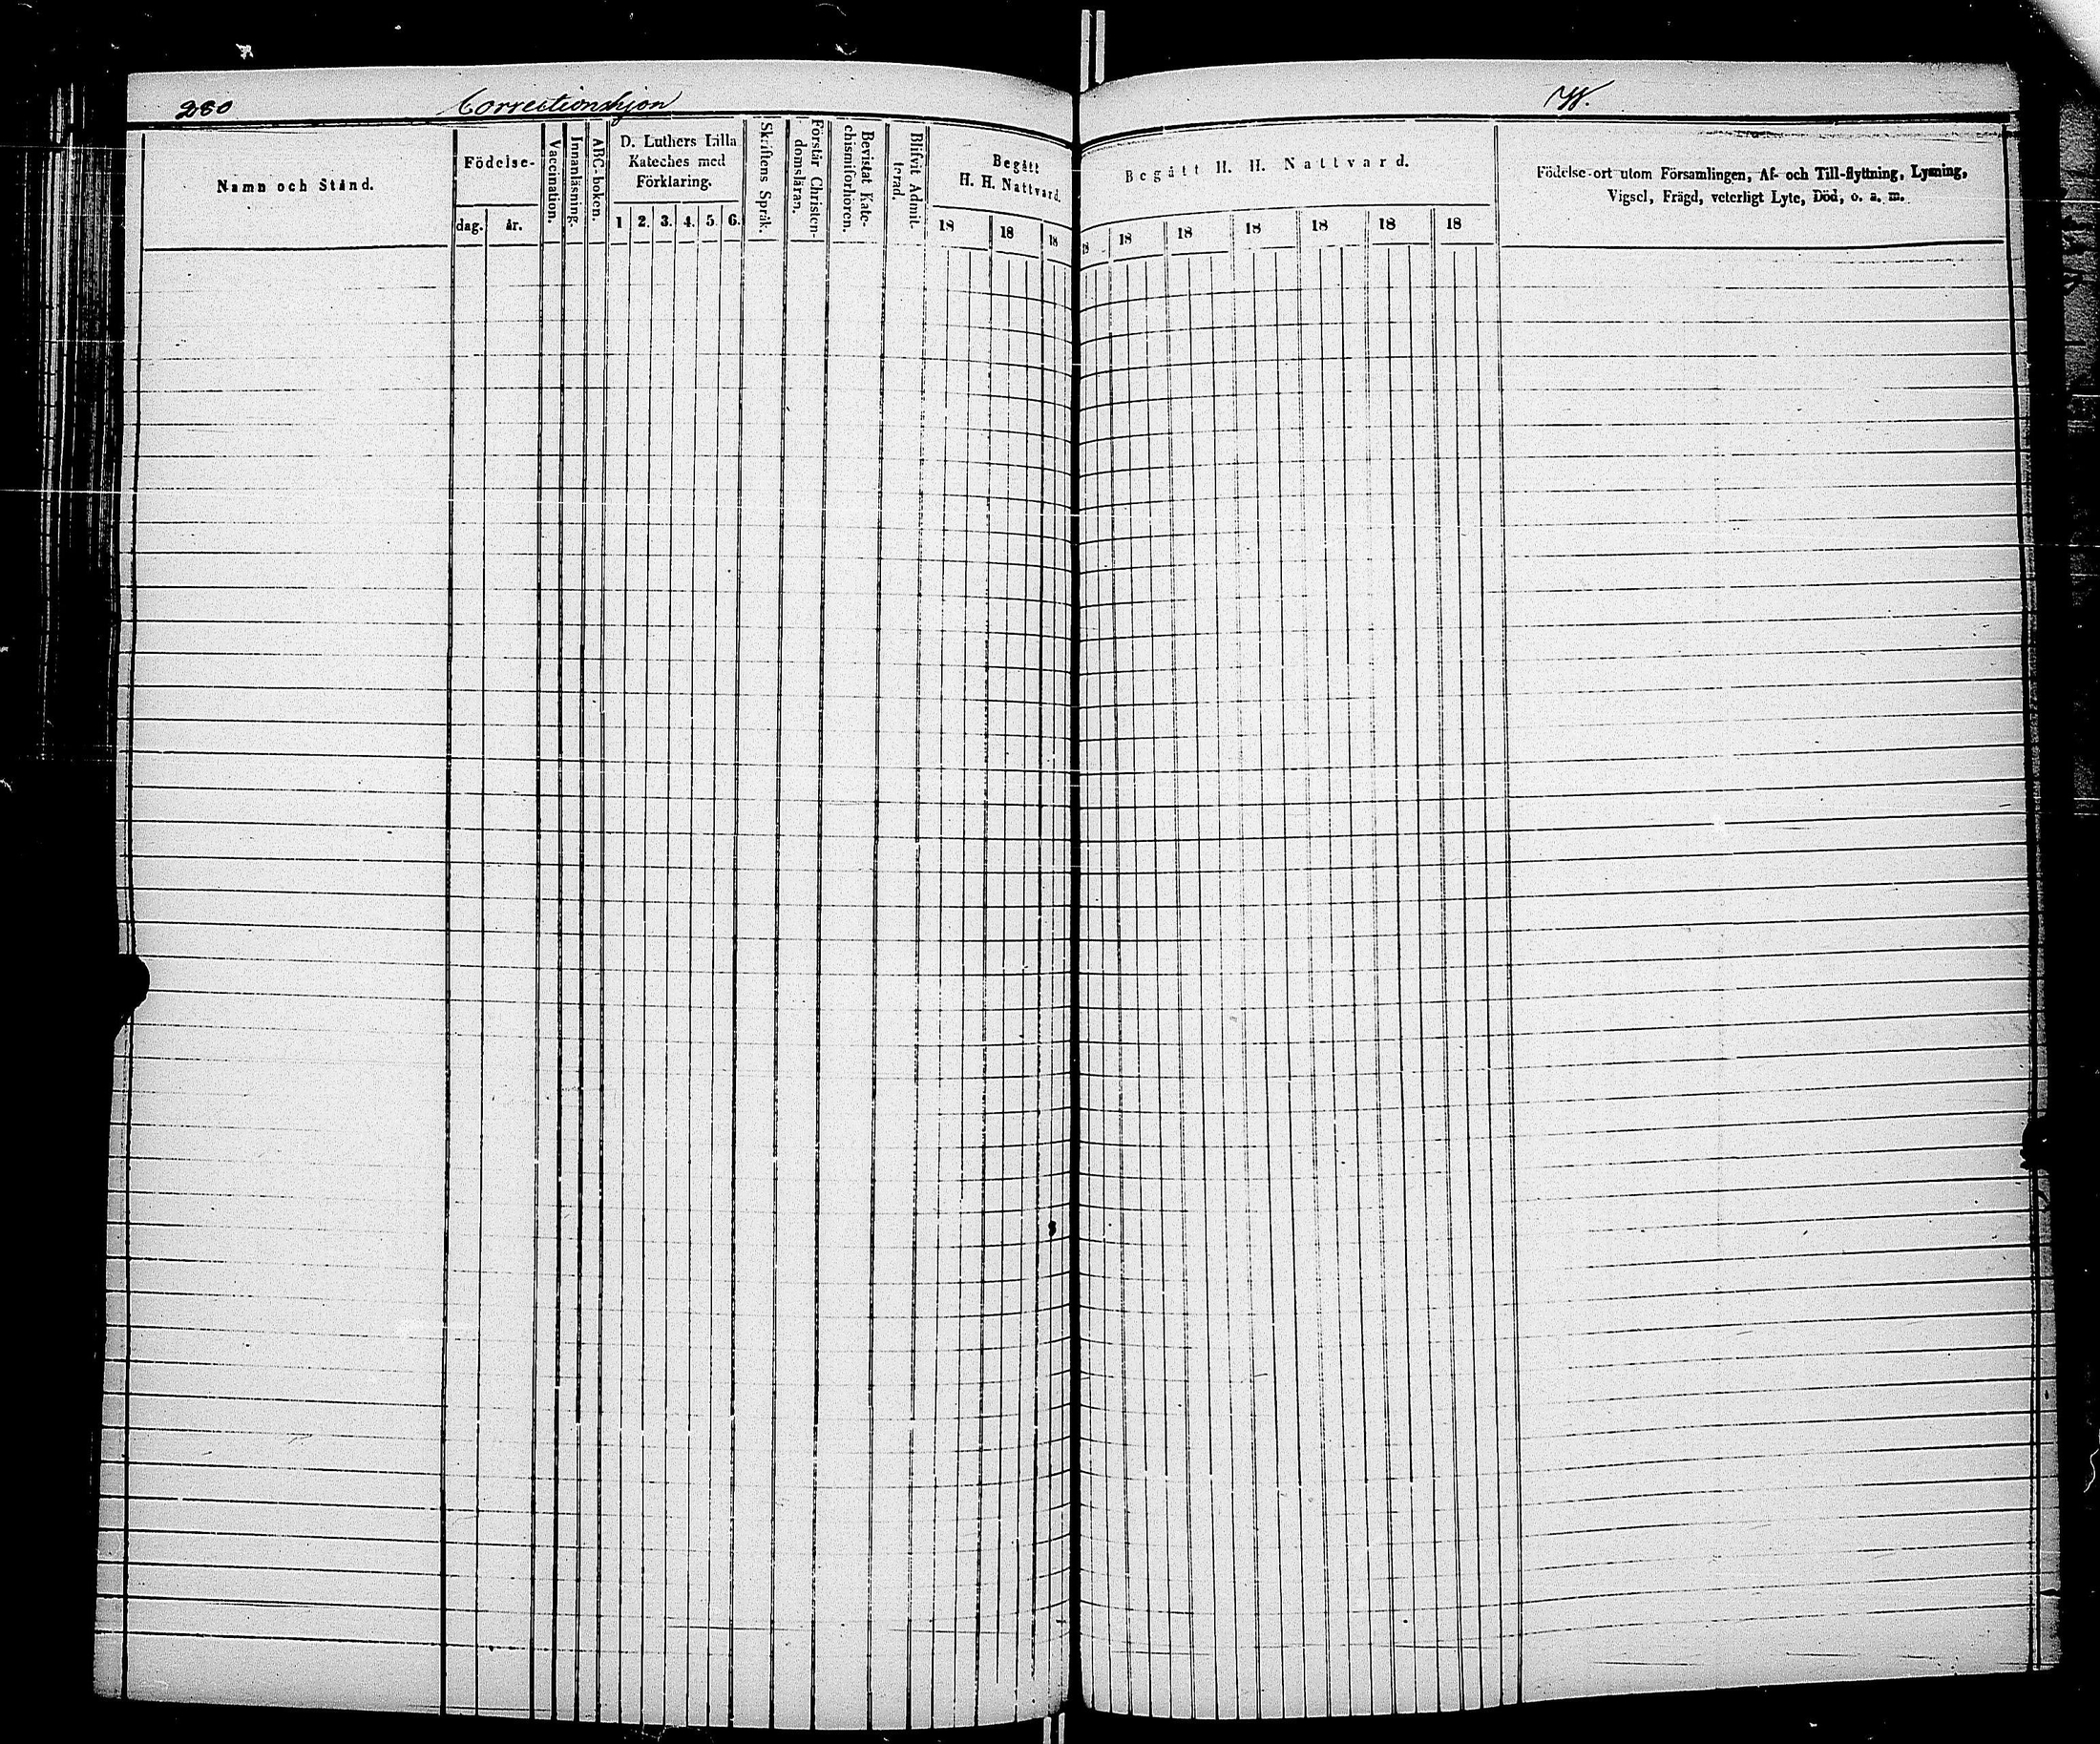 280 Correctionshjon
Namn och Stånd.
Födelse-
dag. år.
Vaccination.
Innanläsning.
ABC-boken.
D. Luthers Lilla
Kateches med
Förklaring.
1 2. 3. 4. 5. 6.
Skriftens Språk.
Förstår Christen-
domsläran.
Bevistat Kate-
chismiförhören.
Blifvit Admit-
terad.
Begått
H. H. Nattvard.
18 18 18
W.
Begått H. H. Nattvard.
18 18 18 18 18 18 18
Födelse-ort utom Församlingen, Af- och Till-flyttning, Lysning,
Vigsel, Frägd, veterligt Lyte, Död, o. a. m.